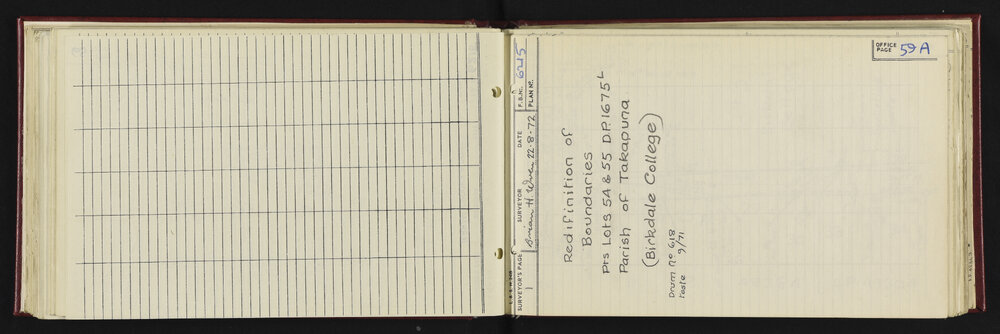 OFFICE PAGE 59A
L. & S. H 208
SURVEYOR'S PAGE 1
SURVEYOR Brian H.
DATE 22-8-72
F.B. No. 6215
PLAN No.
Redifinition of
Boundaries
Pts Lots 5A & 55 D.P.1675 L
Parish of Takapuna
(Birkdale College)
Drum No 618
Teste 9/71